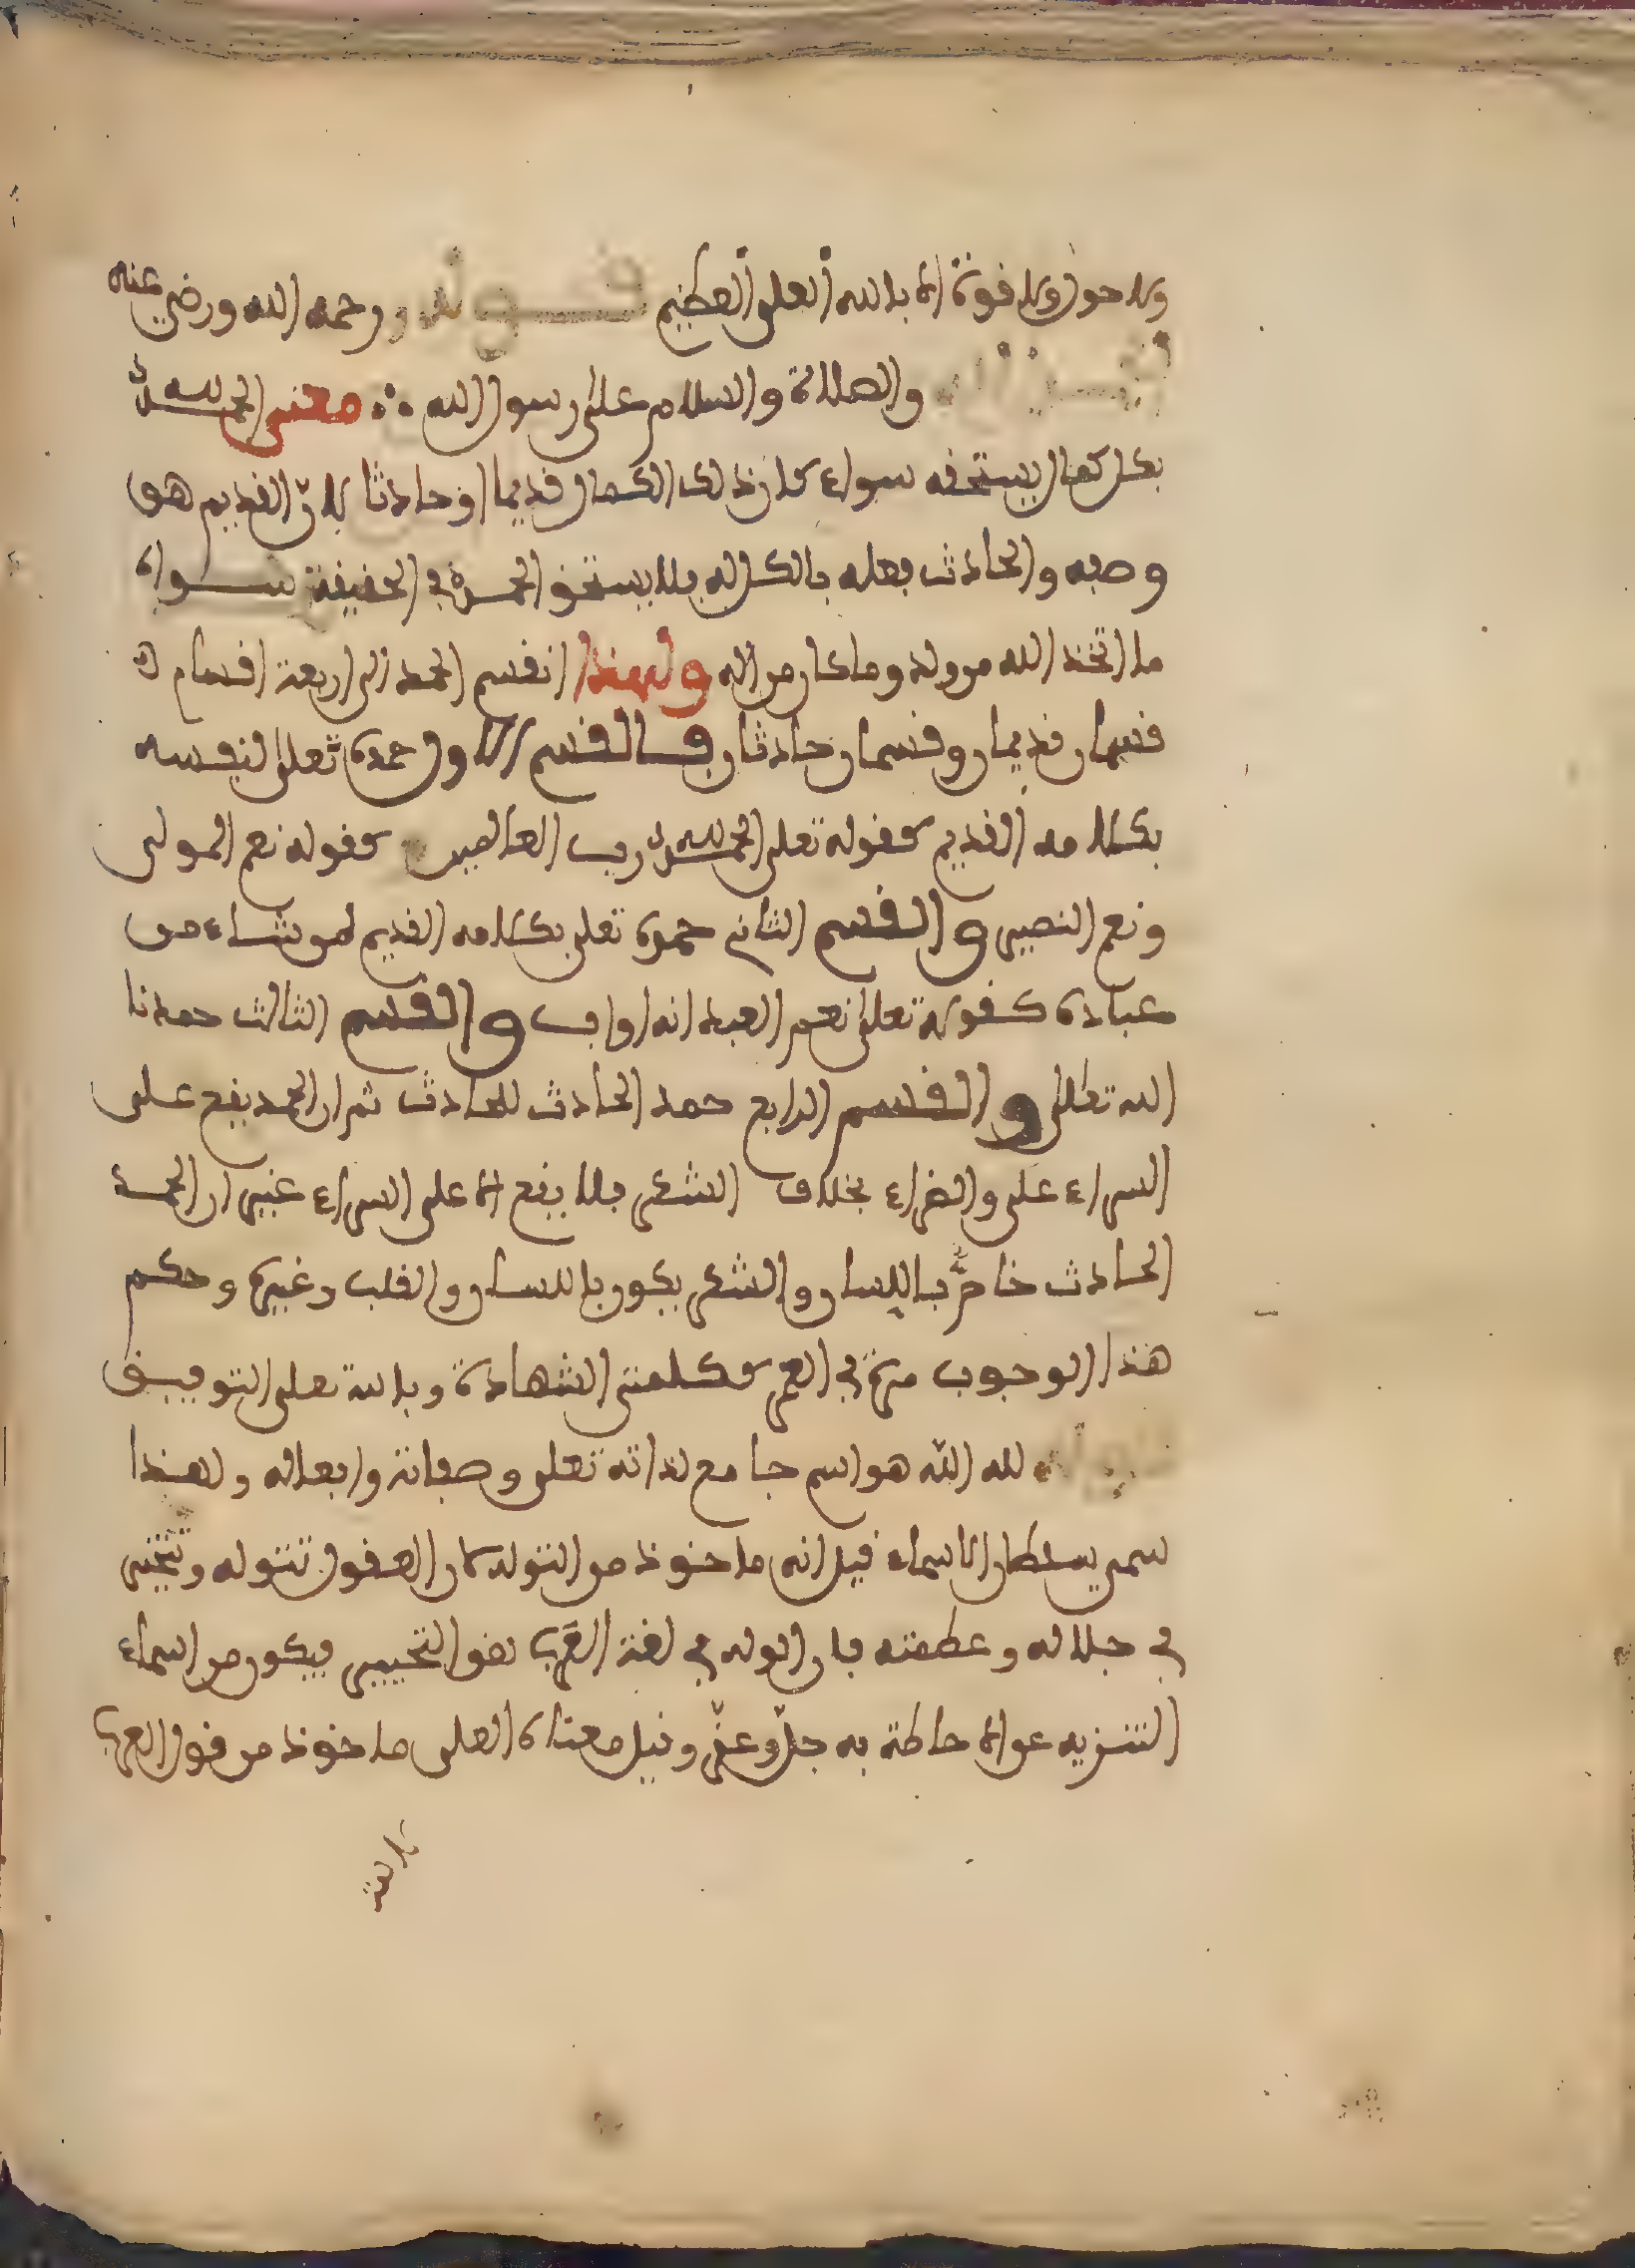 ولا حول ولا قوة الا بالله العلي العظيم قوله رحمه الله ورضي عنه
والصلاة والسلام على رسول الله معنى الحمد لله
بكل كمال يستحقه سواء كان ذلك الكمال قديما او حادثا لان القديم هو
وصفه والحادث فعله فالكل له فلا يستحق الحمد في الحقيقة سواه
ما اتخذ الله من ولد وما كان من اله ولهذا انقسم الحمد الى اربعة اقسام
قسمان قديمان وقسمان حادثان فالقسم الاول حمده تعلى لنفسه
بكلامه القديم كقوله تعلى الحمد لله رب العالمين كقوله نعم المولى
ونعم النصير والقسم الثاني حمده تعلى بكلامه القديم لمن شاء من
عباده كقوله تعلى نعم العبد انه اواب والقسم الثالث حمدنا
الله تعالى والقسم الرابع حمد الحادث للحادث ثم ان الحمد يقع على
السراء على والضراء بخلاف الشكر فلا يقع الا على السراء غير ان الحمد
الحادث خاص باللسان والشكر يكون باللسان والقلب وغيره وحكم
هذا الوجوب مرة في العمر ككلمتي الشهادة وبالله تعلى التوفيق
لله الله هو اسم جامع لذاته تعلى وصفاته وافعاله ولهذا
سمي سلطان الاسماء قيل انه ماخوذ من التوله لان العقول تتوله وتتحير
في جلاله وعظمته فان الوله في لغة العرب هو التحيير فيكون من اسماء
التنزيه عن الاحاطة به جل وعز وقيل معناه العلي ماخوذ من قول العرب
لاهت